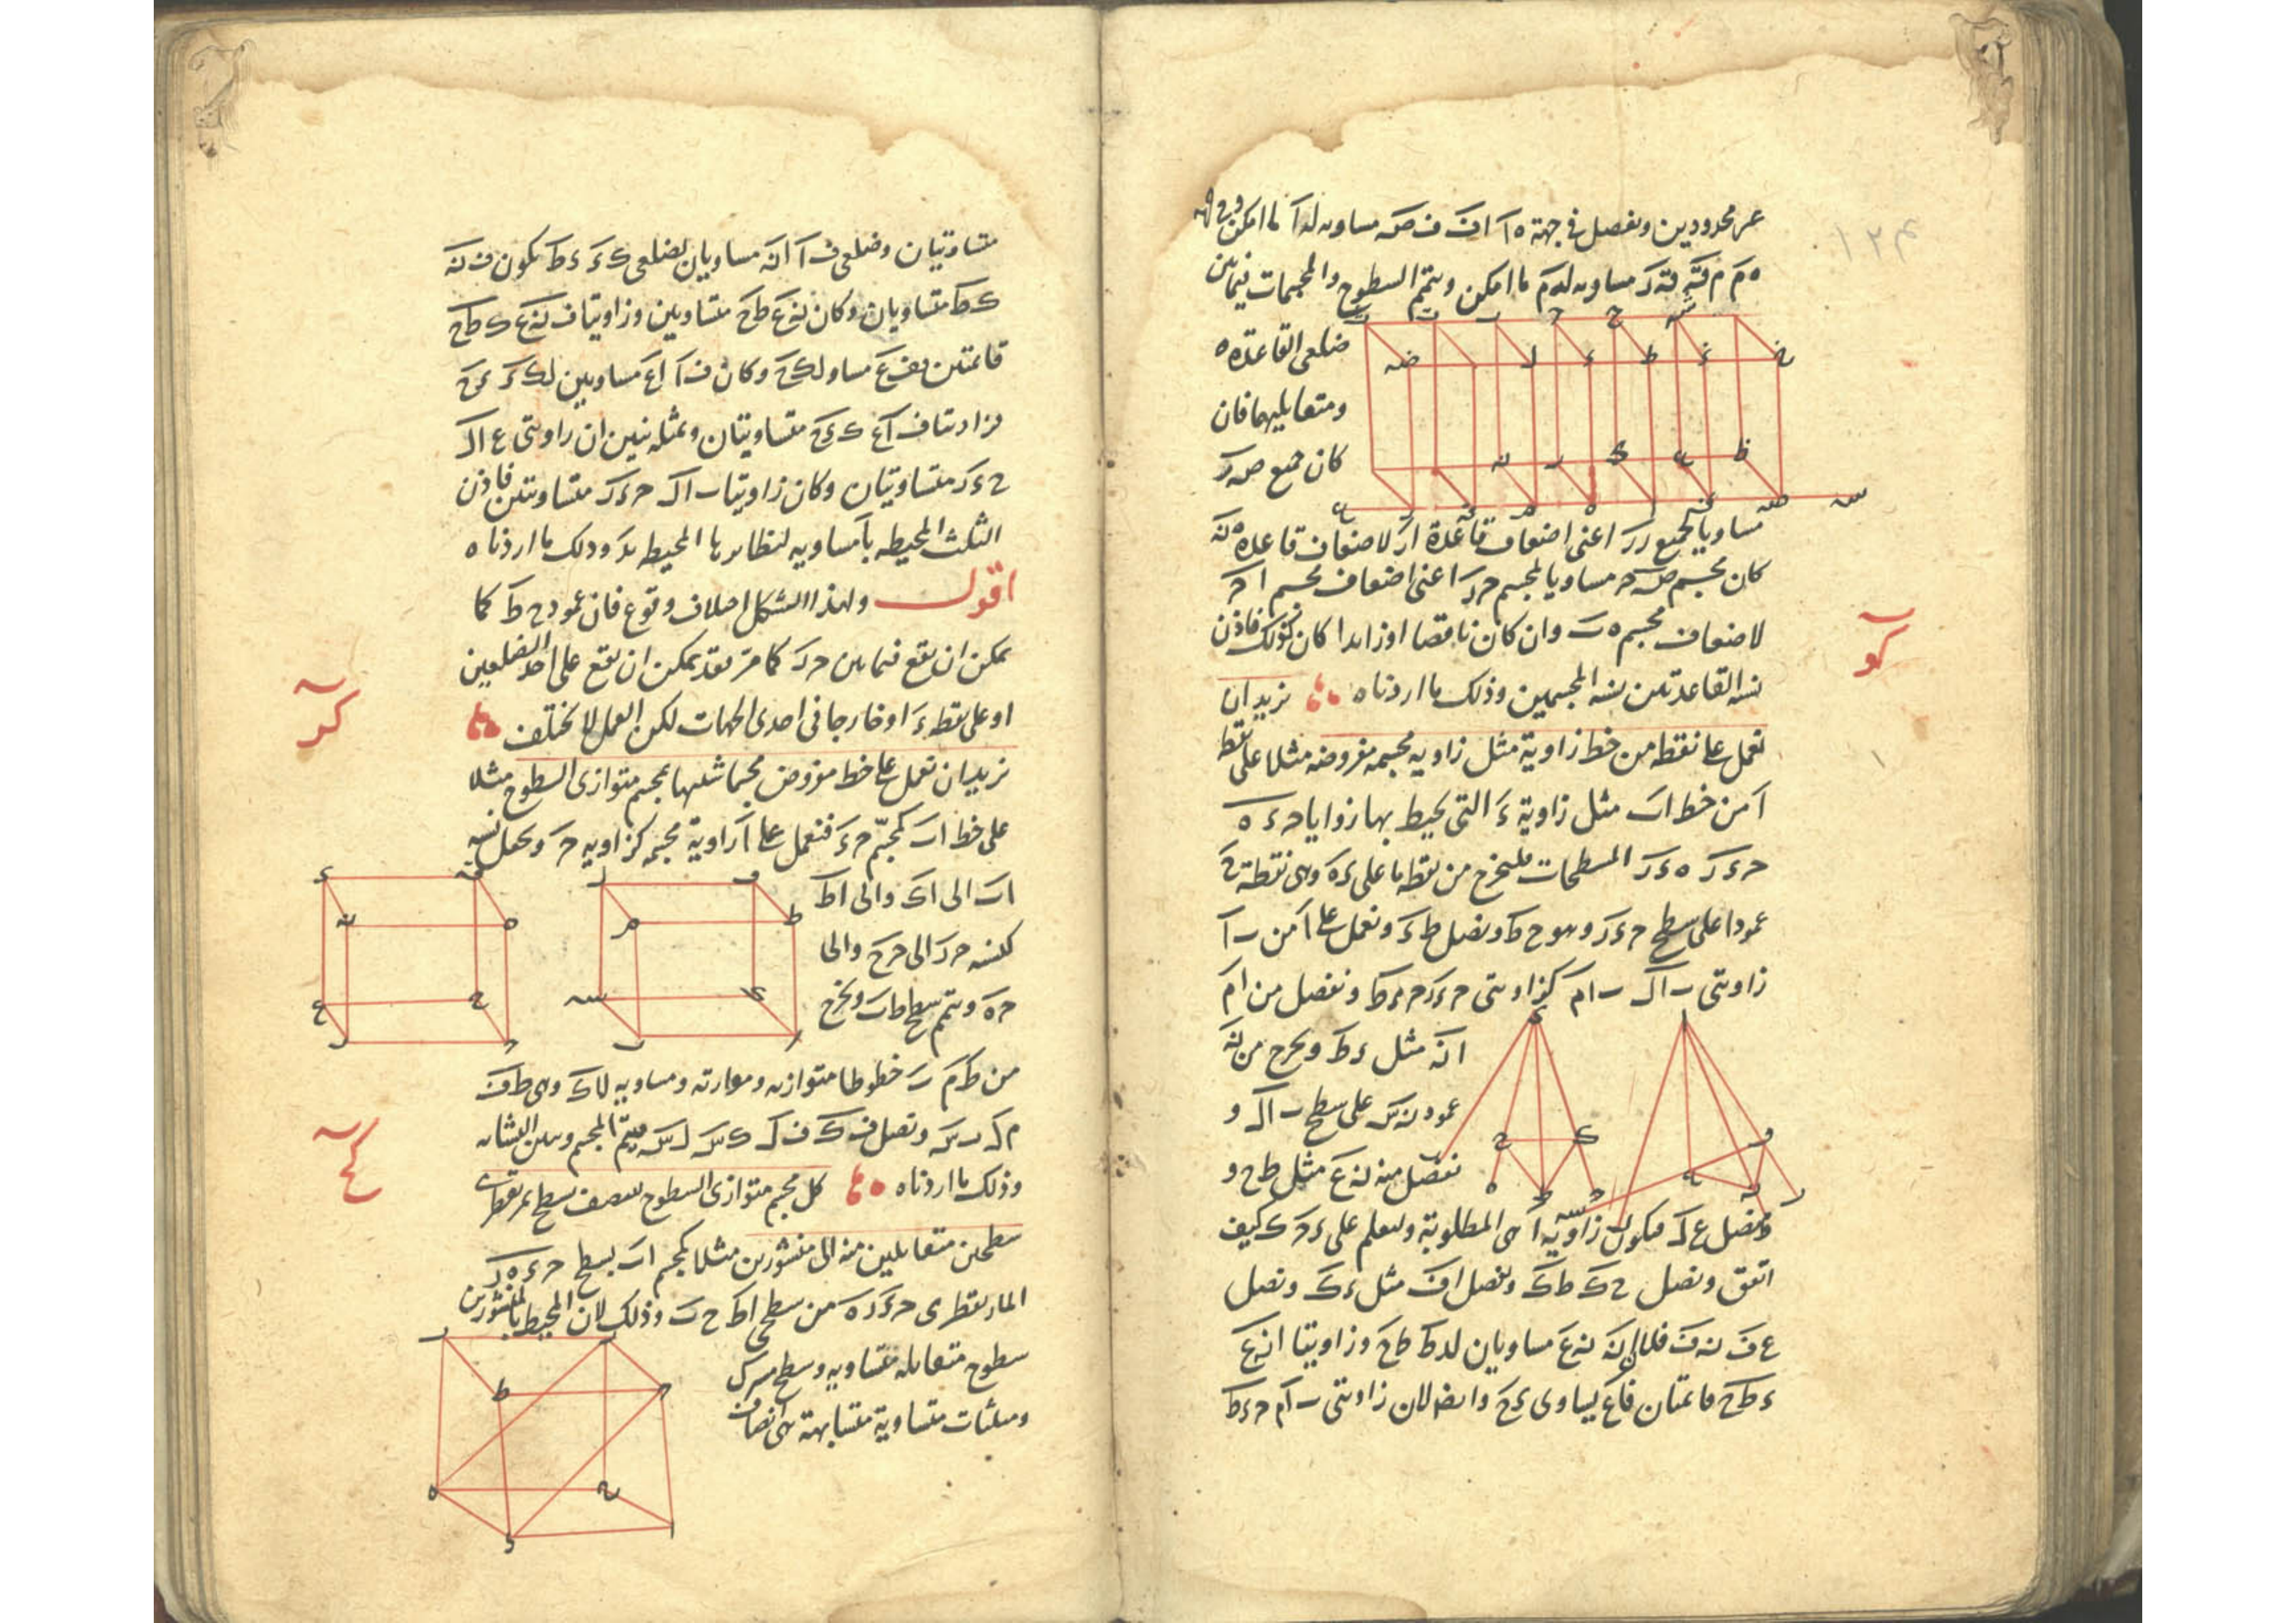 ١٢٤
غير محدودين ونفصل في جهة ه ا اف ف ص مساويه لدا ما امكن وفي جهة
ه م م ق ق ر مساويه له م ما امكن ونتمم السطوح والمجسمات فيما بين
ضلعى القاعدة ه
ومتقابليهما فان
كان جميع ص ر
مساويا لجميع ر ر اعنى اضعاف قاعدة ار لاضعاف قاعدة ه نه
كان مجسم ص ح مساويا لمجسم ح ر اعنى اضعاف مجسم ا ح
لاضعاف مجسم ه ت وان كان ناقصا او زايدا كان كذلك فاذن
نسبة القاعدتين نسبة المجسمين وذلك ما اردناه نريد ان
كو
نعمل على نقطه من خط زاوية مثل زاويه مجسمه مفروضه مثلا على نقطة
ا من خط اب مثل زاوية ء التي يحيط بها زوايا ح ء ه
ح ء ر ه ء ر المسطحات فليخرج من نقطه ما على ء ه وهى نقطة ح
عمودا على سطح ح ء ر وهو ح ط ونصل ط ء ونعمل على ا من ب ا
زاويتى ب ا ل ب ا م كزاويتى ح ء ر ح ء ط ونفصل من ا م
ا نه مثل ء ط ونخرج من نه
عمود نه س على سطح ب ا ل و
نفصل منه نه ع مثل ط ح و
ونصل ع ا فيكون زاوية ا هى المطلوبة ولنعلم على ء ح ك كيف
اتفق ونصل ح ك ط ك ونفصل ا ف مثل ء ك ونصل
ع ف نه ف فلان ا نه نه ع مساويان لء ط ط ح وزاويتا ا نه ع
ء ط ح قائمتان فاع يساوى ء ح وايضا لان زاويتى ب ا م ح ء ط
متساويتان وضلعى ف ا ا نه مساويان لضلعى ك ء ء ط يكون ف نه
ك ط متساويان وكان نه ع ط ح متساويين وزاويتا ف نه ع ك ط ح
قائمتين فف ع مساو لك ح وكان ف ا ا ع مساويين لك ء ء ح
فزاويتا ف ا ع ك ء ح متساويتان وبمثله نبين ان زاويتى ع ا ل
ح ء ر متساويتان وكان زاويتا ب ا ل ح ء ر متساويتين فاذن
الثلث المحيطه با مساويه لنظايرها المحيطه بء وذلك ما اردناه
اقول ولهذا الشكل اختلاف وقوع فان عمود ح ط كما
يمكن ان يقع فيما بين ح ر كما مر فقد يمكن ان يقع على احد الضلعين
او على نقطة ء او خارجا فى احدى الجهات لكن العمل لا يختلف
كر
نريد ان نعمل على خط مفروض مجسما شبيها بمجسم متوازى السطوح مثلا
على خط اب كمجسم ح ء فنعمل على ا زاوية مجسمه كزاويه ح ونجعل نسبة
اب الى اك والى اط
كنسبه ح ر الى ح ح والى
ح ه ونتمم سطح ط ب ونخرج
من ط م ب خطوطا متوازيه وموازيه ومساويه لاك وهى ط ف
م ل ب س ونصل ف ك ف ل ك س ل س فيتم المجسم وبين التشابه
وذلك ما اردناه كل مجسم متوازى السطوح ينصفه سطح يمر بقطرى
كح
سطحين متقابلين منه الى منشورين مثلا كمجسم اب بسطح ح ء ه ر
المار بقطرى ح ء ر ه من سطحى اط ح ب وذلك لان المحيط بالمنشورين
سطوح متقابله متساويه وسطح مشترك
ومثلثات متساوية متشابهة هى انصاف